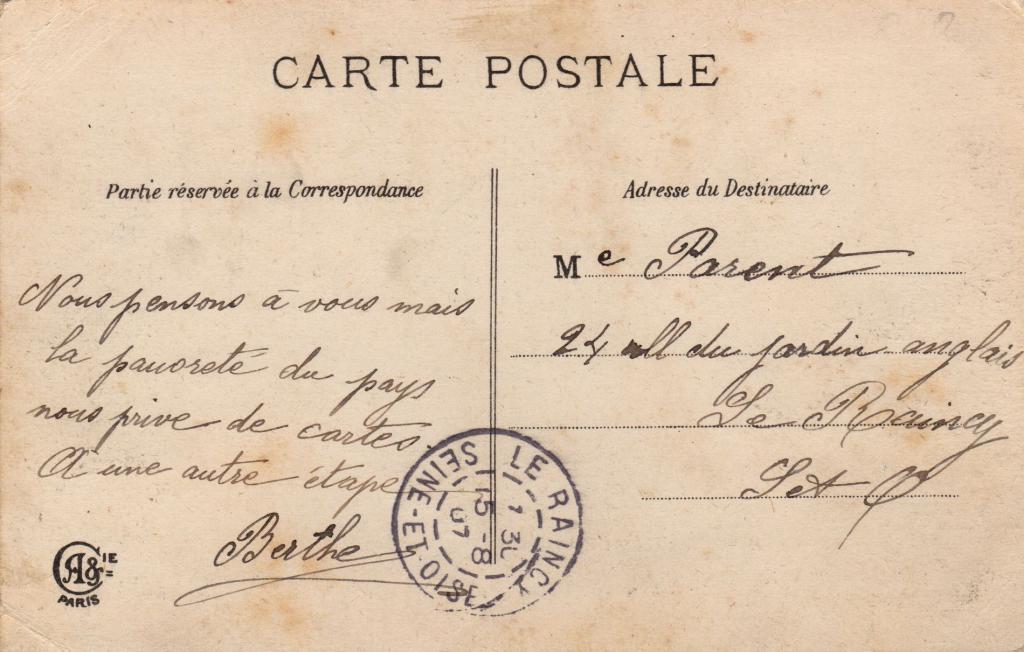 CARTE POSTALE
Partie réservée à la Correspondance
Nous pensons à vous mais
la pauvreté du pays
nous prive de cartes
A une autre étape
Berthe
Adresse du Destinataire
Me Parent
24 all du jardin anglais
Le Raincy
S et O
LE RAINCY
SEINE-ET-OISE
5 -8
07
CA & IE
PARIS